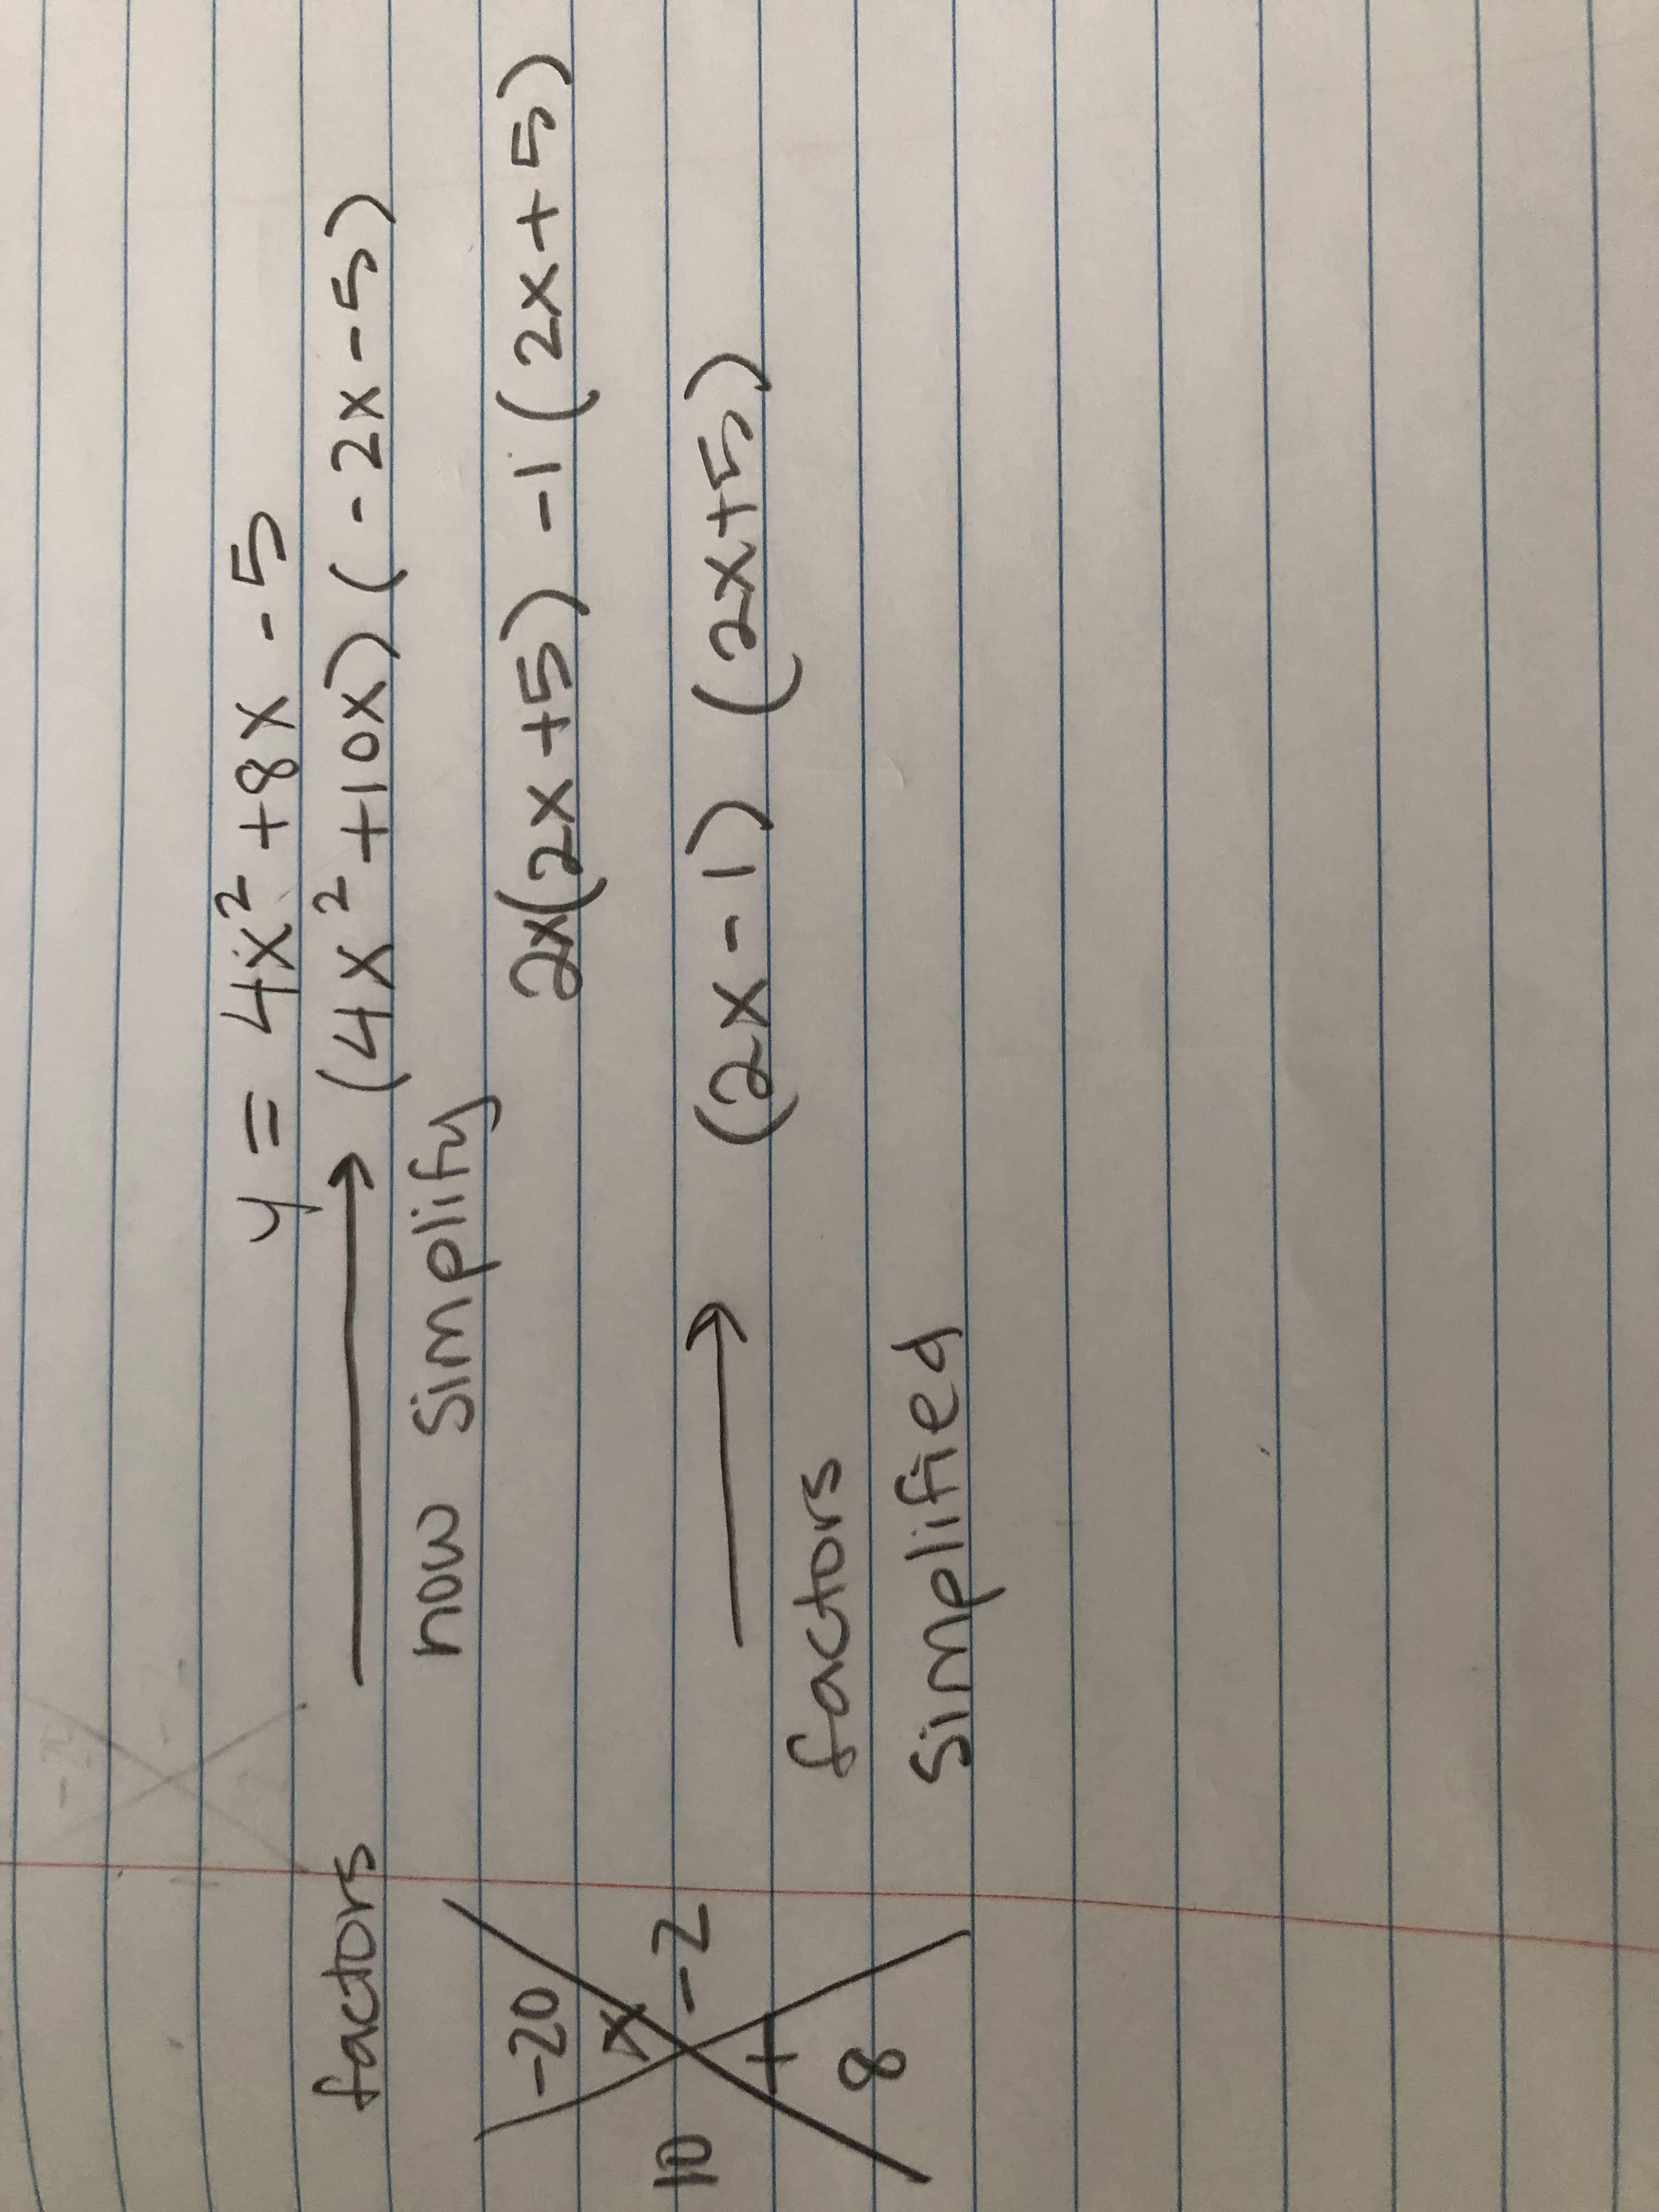 y = 4x² + 8x - 5
factors → (4x² + 10x) (-2x - 5)
now simplify
2x(2x + 5) - 1 (2x + 5)
-20
x
10 -2
+
8
→ (2x - 1) (2x + 5)
factors
simplified